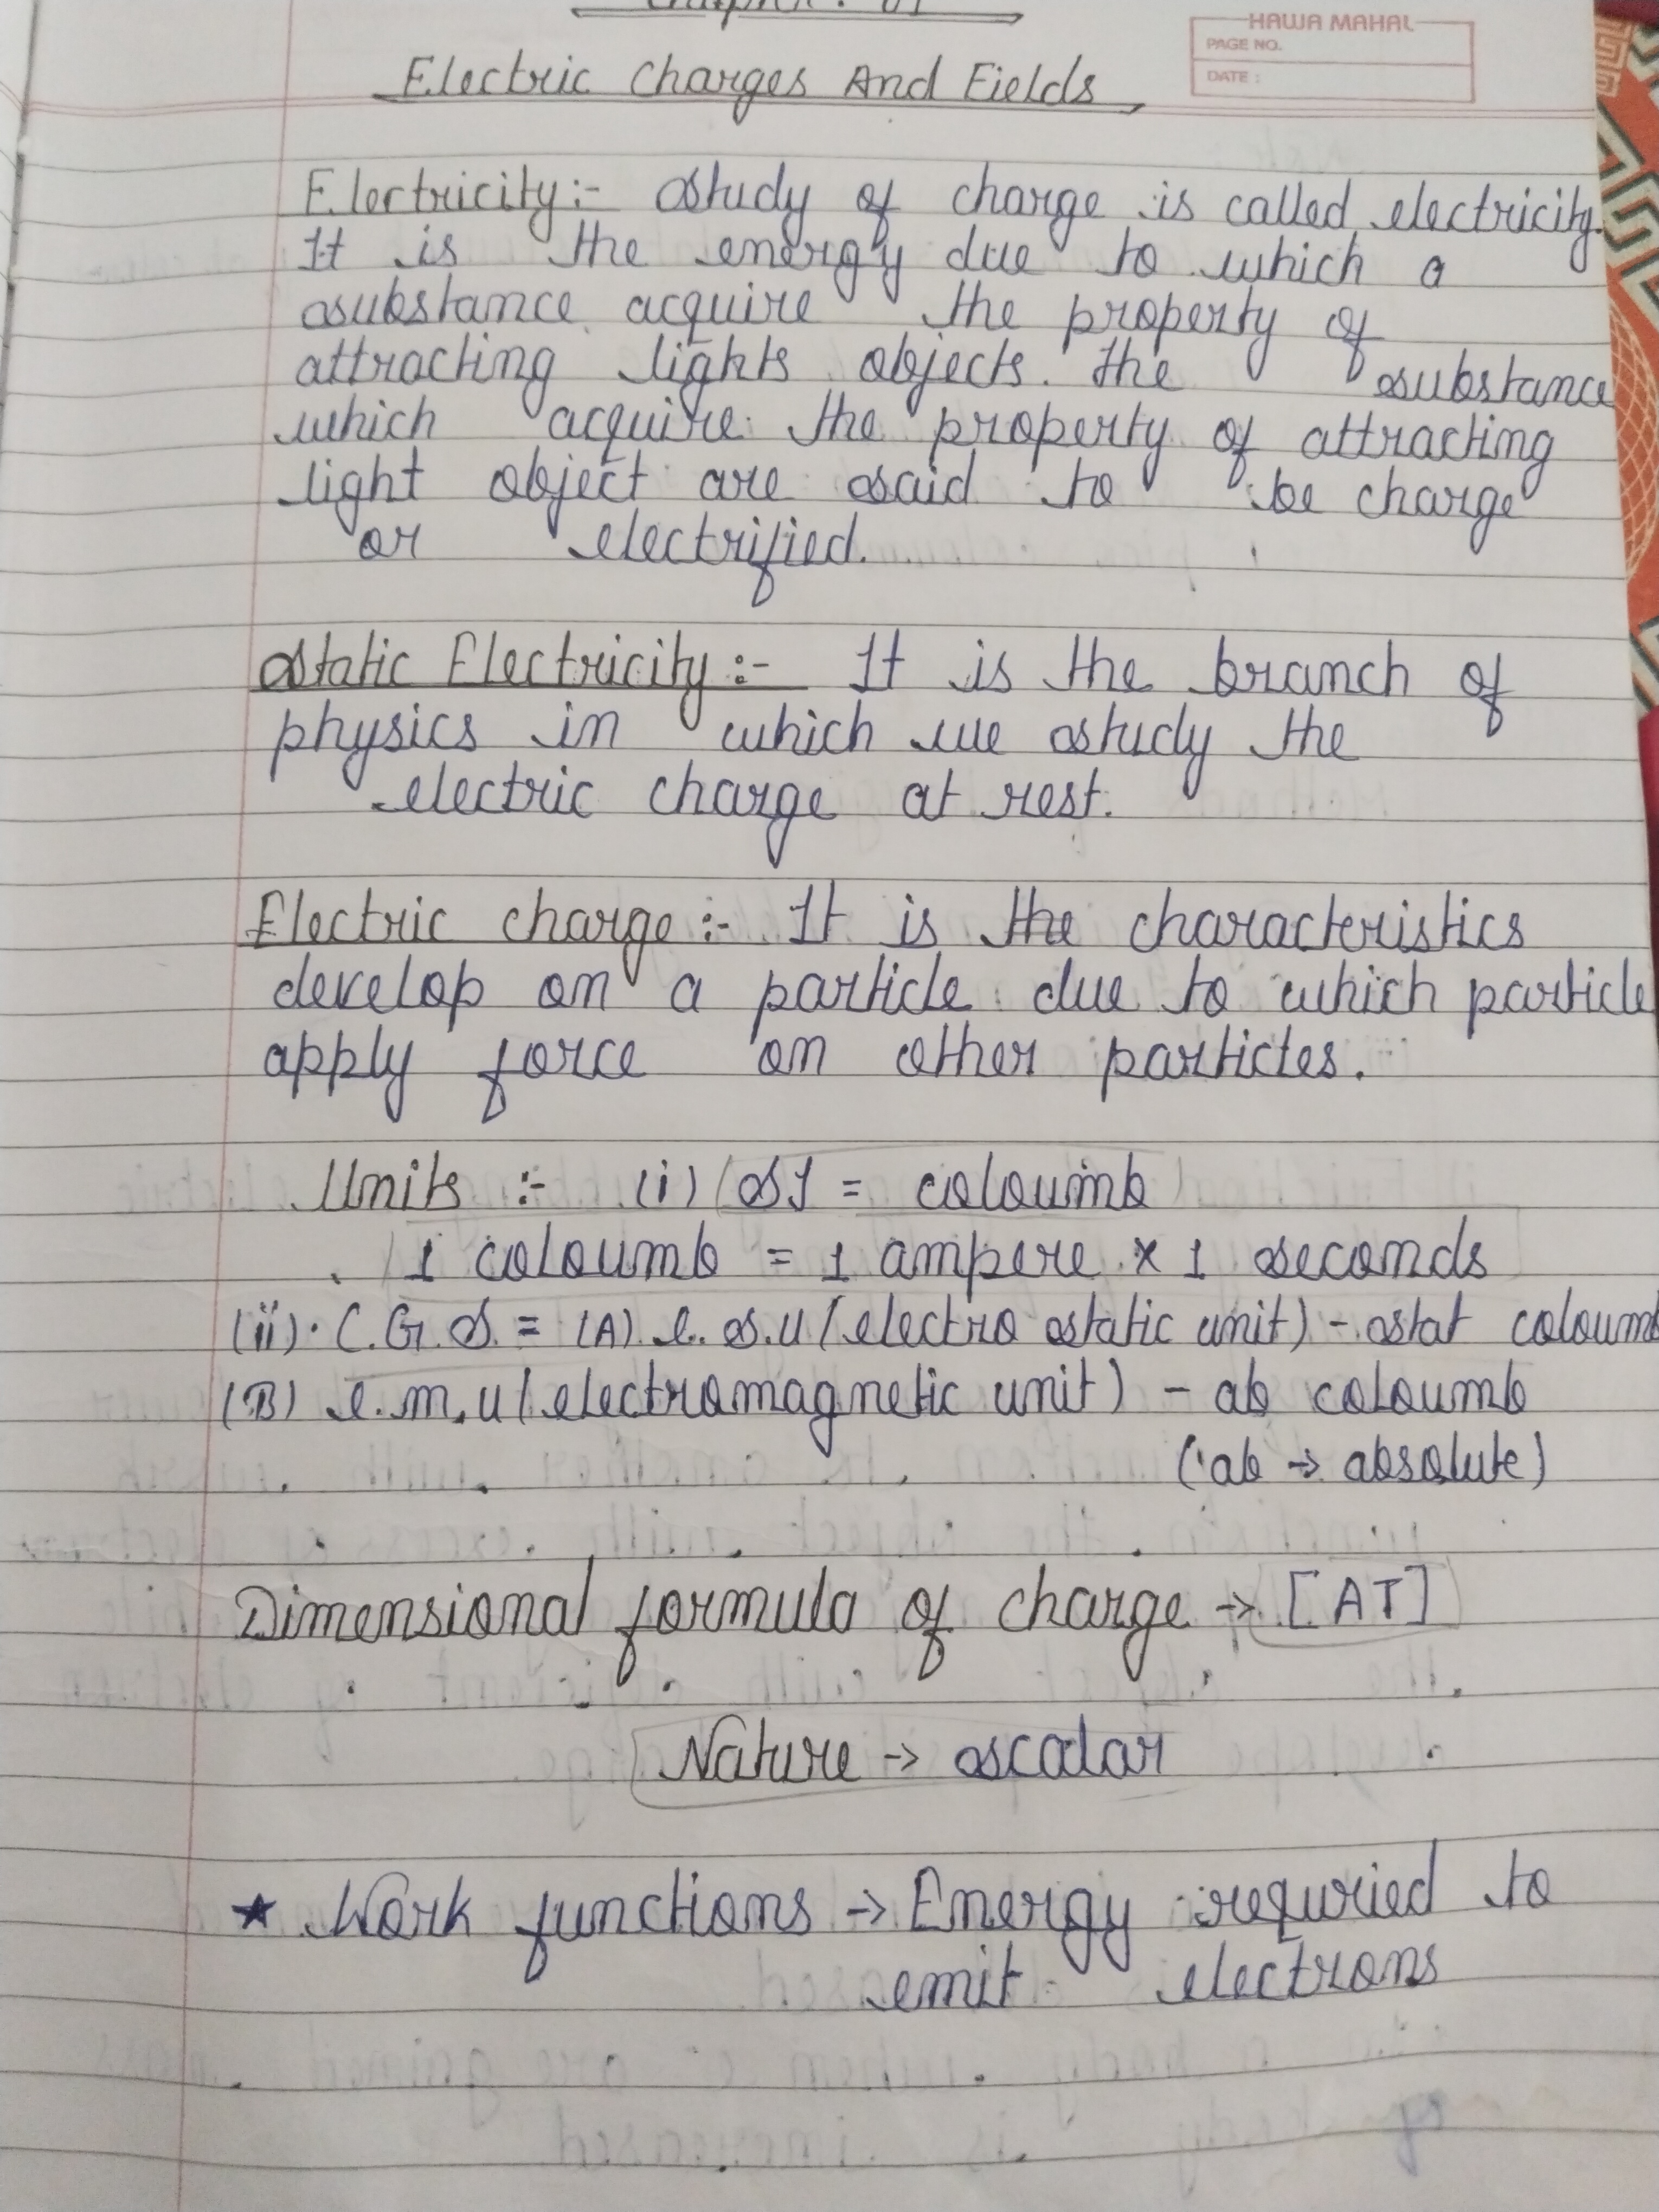 Chapter : 01
HAWA MAHAL
PAGE NO.
DATE :
Electric Charges And Fields
Electricity :- Study of charge is called electricity.
It is the energy due to which a
substance acquire the property of
attracting lights objects. The substance
which acquire the property of attracting
light object are said to be charge
or electrified.
Static Electricity :- It is the branch of
physics in which we study the
electric charge at rest.
Electric charge :- It is the characteristics
develop on a particle due to which particle
apply force on other particles.
Units :- (i) SI = coloumb
1 coloumb = 1 ampere × 1 seconds
(ii) C.G.S. = (A) e.s.u (electro static unit) - stat coloumb
(B) e.m.u (electromagnetic unit) - ab coloumb
(ab → absolute)
Dimensional formula of charge → [AT]
Nature → scalar
★ Work functions → Energy requried to
emit electrons